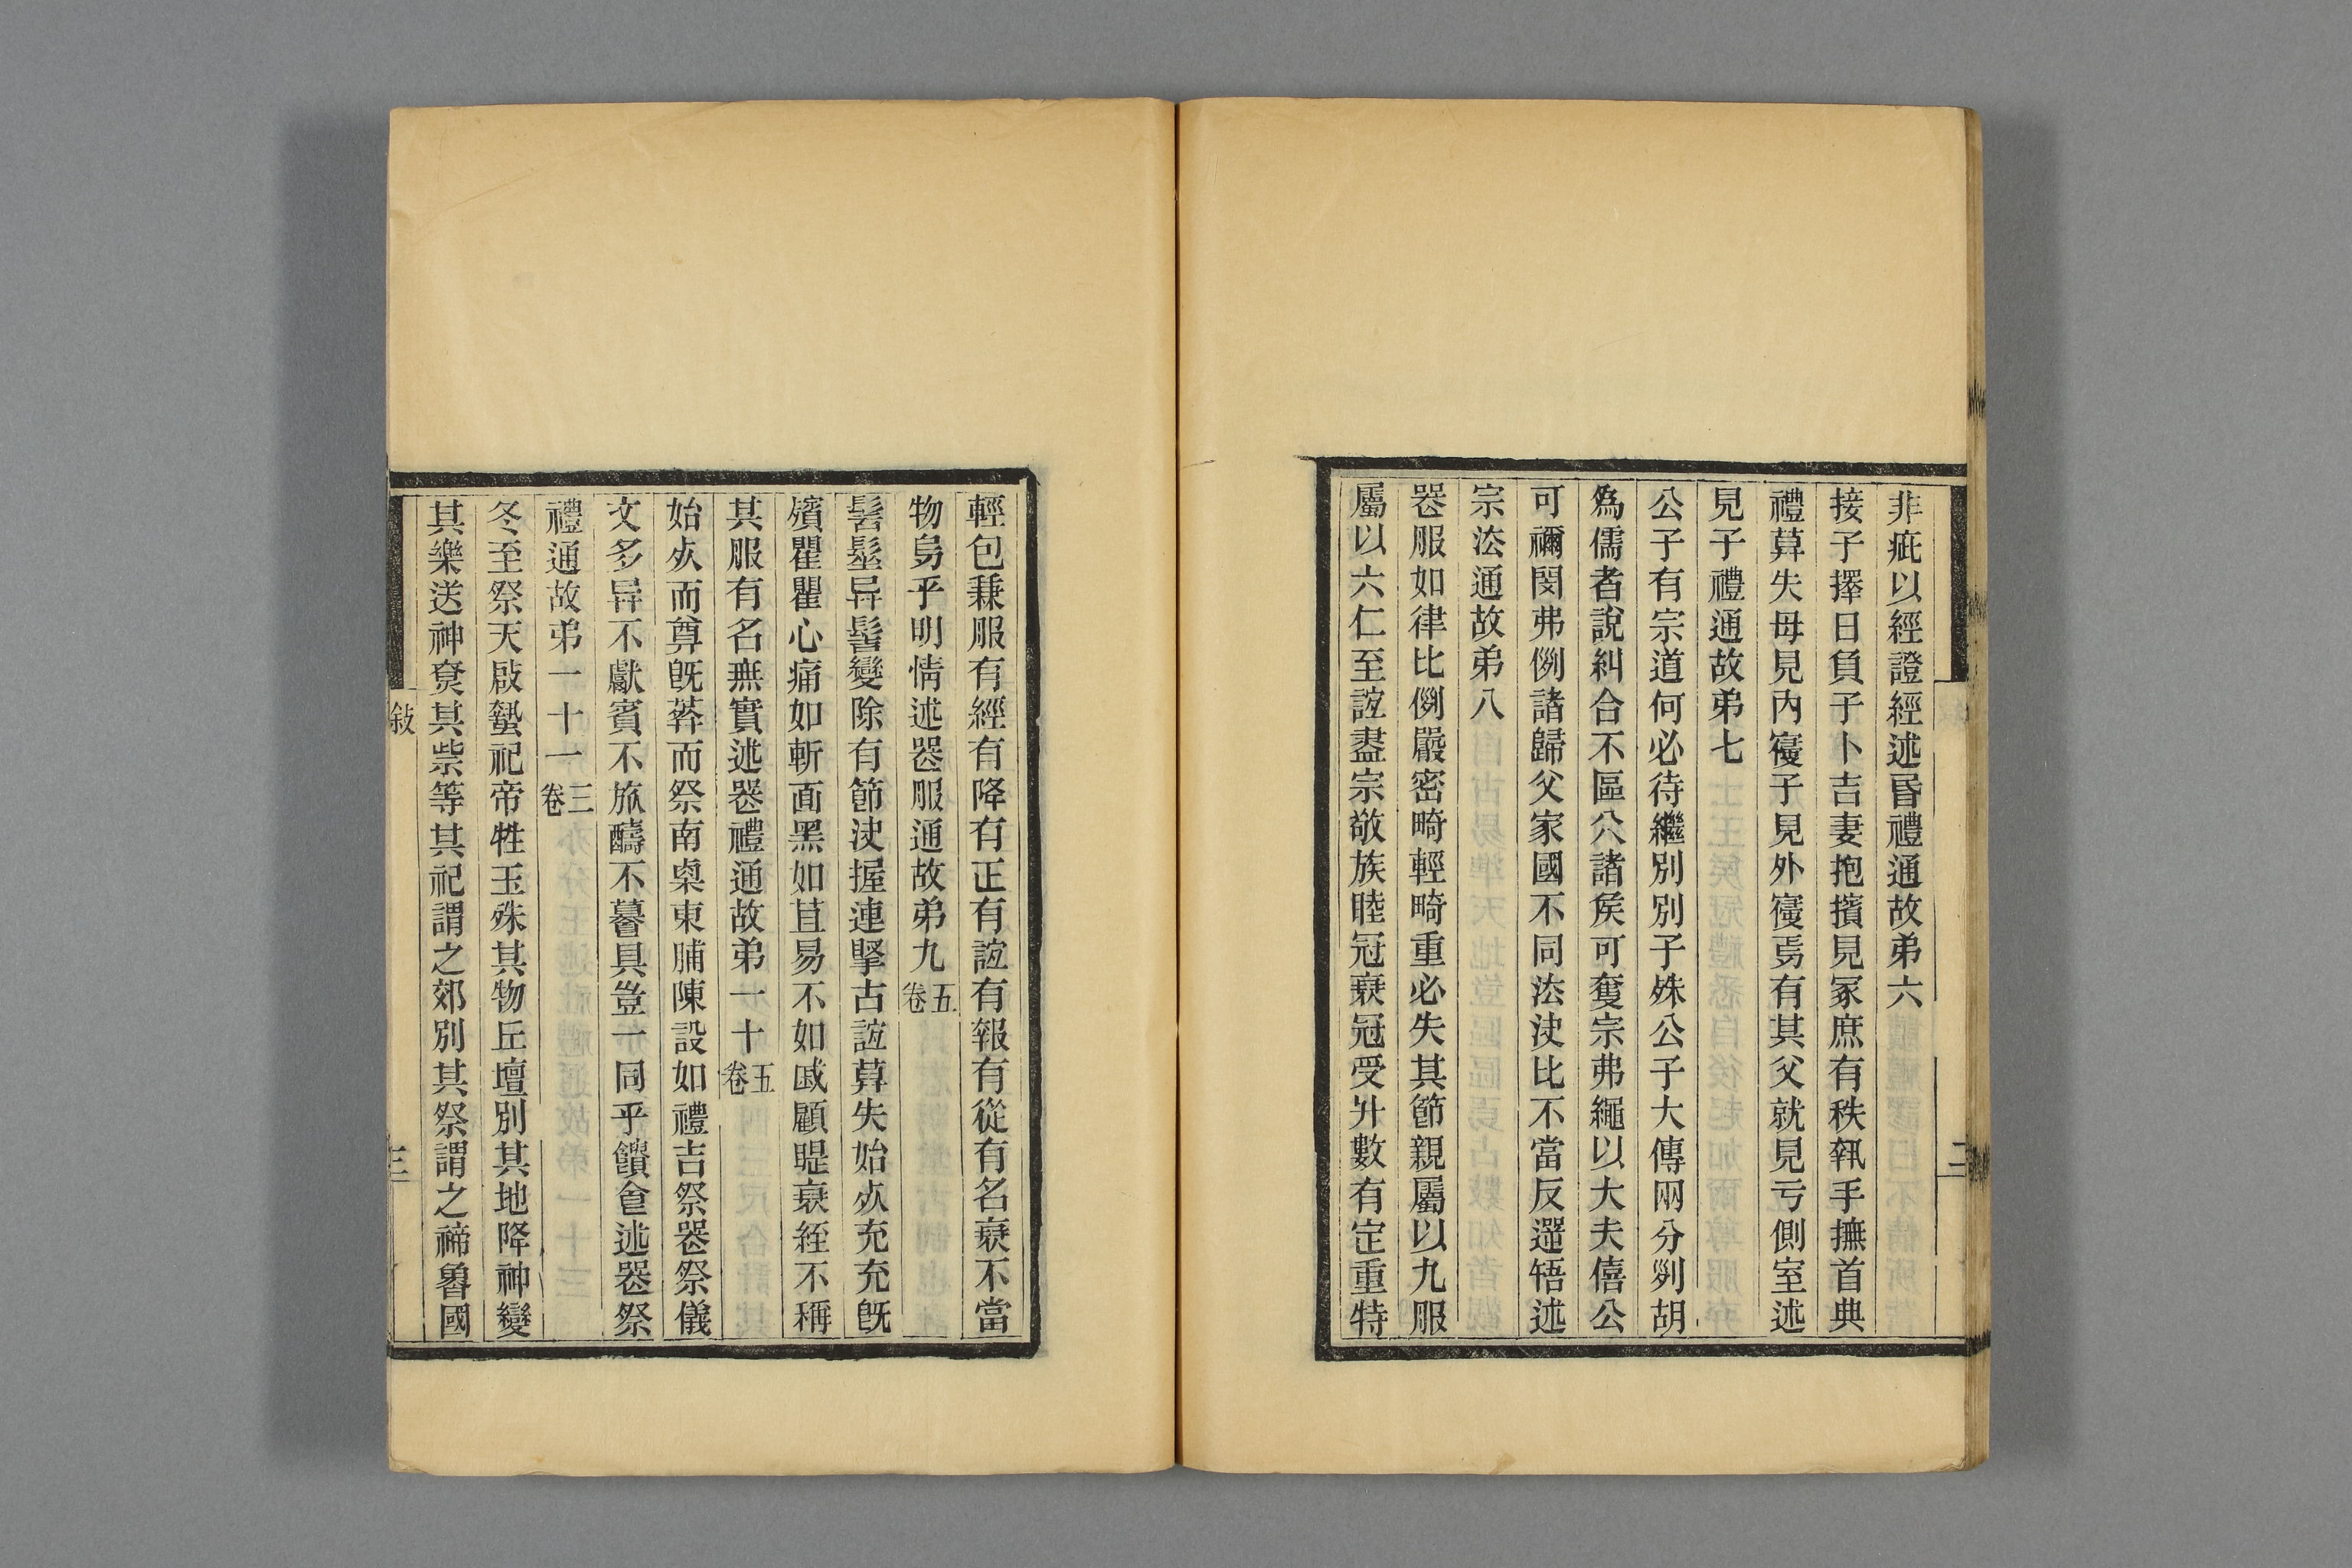 非疵以經證經述昬禮通故弟六
接子擇日負子卜吉妻抱擯見冢庶有秩執手撫首典
禮算失母見內寑子見外寑焉有其父就見亏側室述
見子禮通故弟七
公子有宗道何必待繼別別子殊公子大傳兩分剡胡
爲儒者說糾合不區公諸矦可奪宗弗繩以大夫僖公
可禰閔弗例諸歸父家國不同法決比不當反遝啎述
宗法通故弟八
器服如律比例嚴密畸輕畸重必失其節親屬以九服
屬以六仁至誼盡宗敬族睦冠衰冠受升數有定重特
輕包兼服有經有降有正有誼有報有從有名衰不當
物舄乎明情述器服通故弟九 五卷
髺髽异髻變除有節決握連掔古誼算失始㱔充充旣
殯瞿瞿心痛如斬面黑如苴易不如戚顧睼衰絰不稱
其服有名無實述器禮通故弟一十 五卷
始㱔而尊旣葬而祭南㮚東脯陳設如禮吉祭器祭儀
文多异不獻賓不旅醻不謩具豈一同乎饋食述器祭
禮通故弟一十一 三卷
冬至祭天啟蟄祀帝牲玉殊其物丘壇別其地降神變
其樂送神焚其祡等其祀謂之郊別其祭謂之禘魯國
敍
三